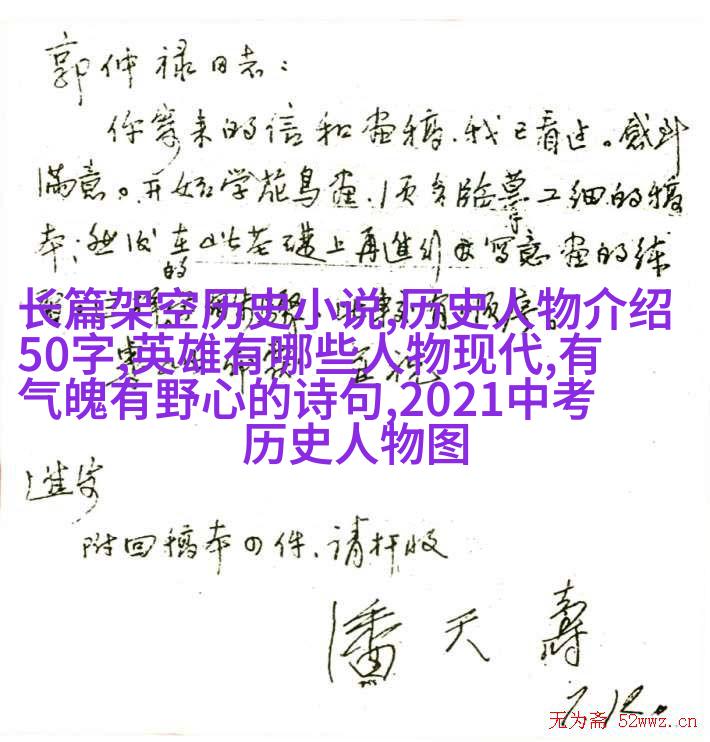 郭仲禄同志：
你寄来的信和画稿，我已看过。感到
满意。开始学花鸟画，须多临摹工细的稿
本；然后在此基础上再进行写意画的练
的
长篇架空历史小说,历史人物介绍
50字,英雄有哪些人物现代,有
气魄有野心的诗句,2021中考
历史人物图
进安
附回稿本四件、请检收
潘天寿
7.12.
无为斋 52wwz.cn